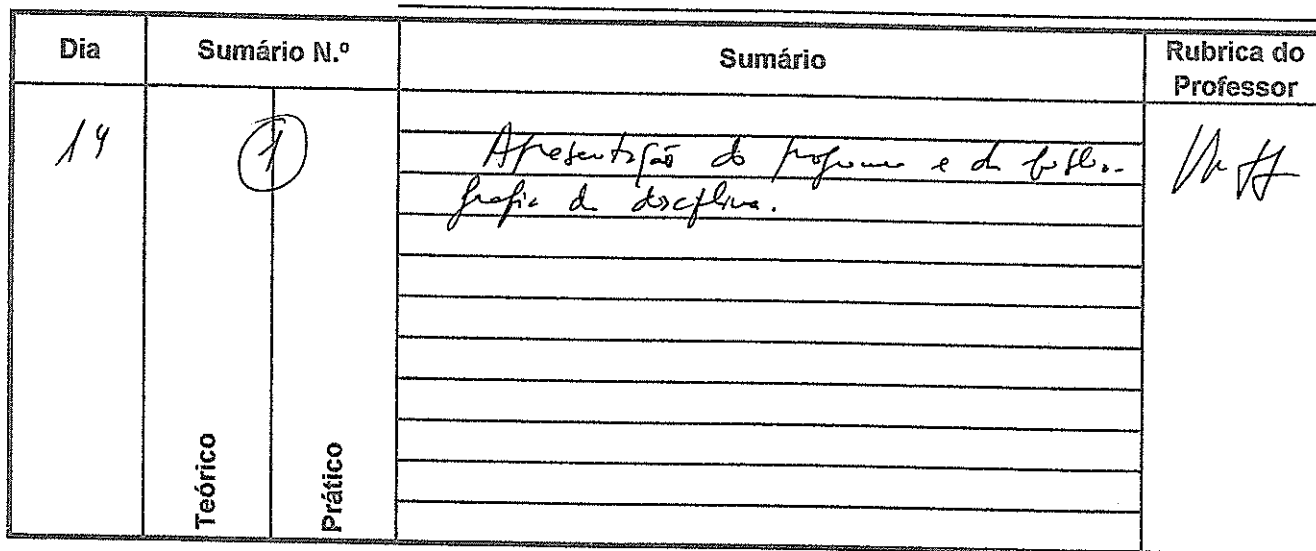 Dia Sumário N.º Sumário Rubrica do Professor
14 1 Apresentação do programa e da biblio-
grafia da disciplina.
Teórico Prático